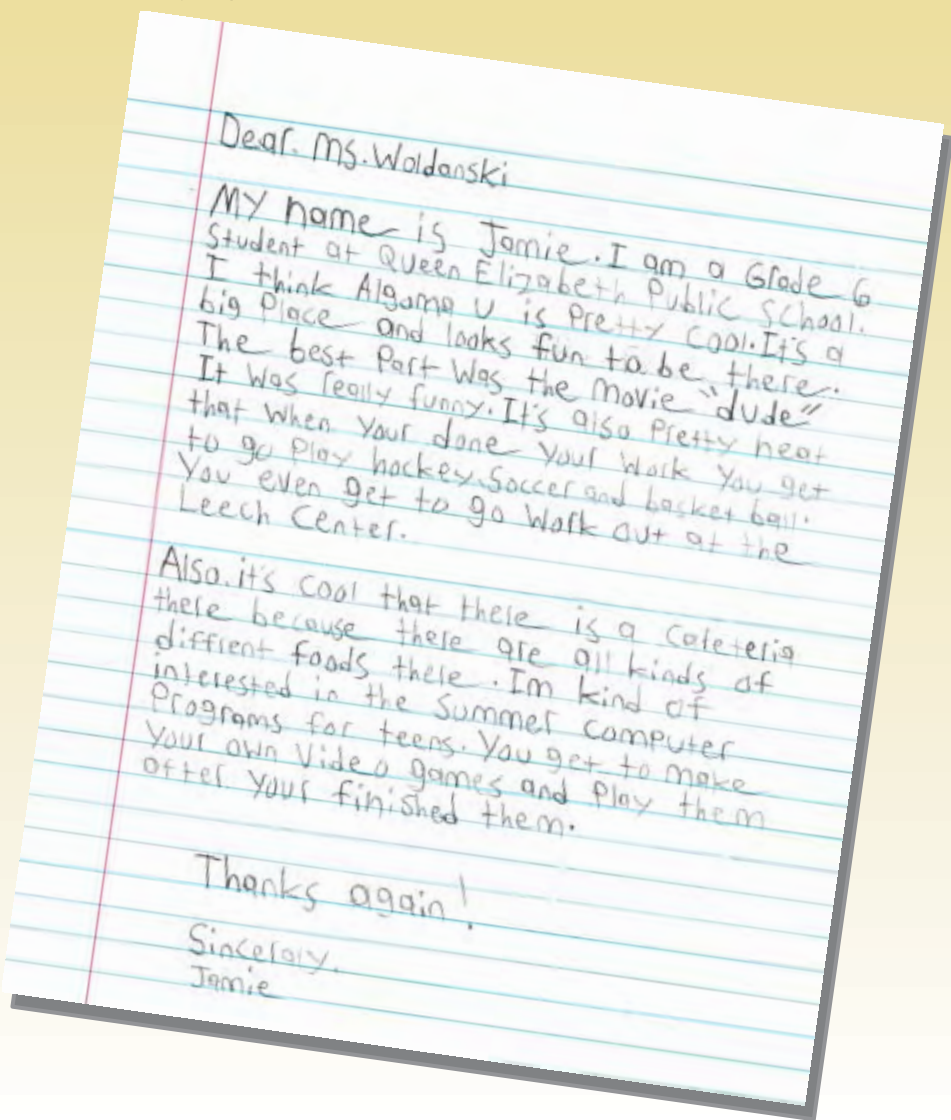 Dear. Ms. Woldanski
My name is Jamie. I am a Grade 6
Student at Queen Elizabeth Public School.
I think Algoma U is Pretty Cool. It's a
big Place and looks fun to be there.
The best Part Was the movie "dude"
It Was really funny. It's also Pretty neat
that When your done your Work you get
to go Play hockey, Soccer and basket ball.
You even get to go Work out at the
Leech Center.
Also, it's cool that there is a cafeteria
there because there are all kinds of
diffrent foods there. Im kind of
interested in the Summer Computer
Programs for teens. You get to make
your own Video games and Play them
after your finished them.
Thanks again!
Sinceraly,
Jamie